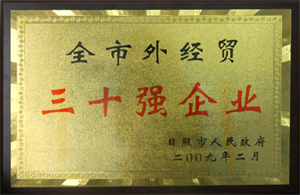 全市外经贸
三十强企业
日照市人民政府
二00九年二月